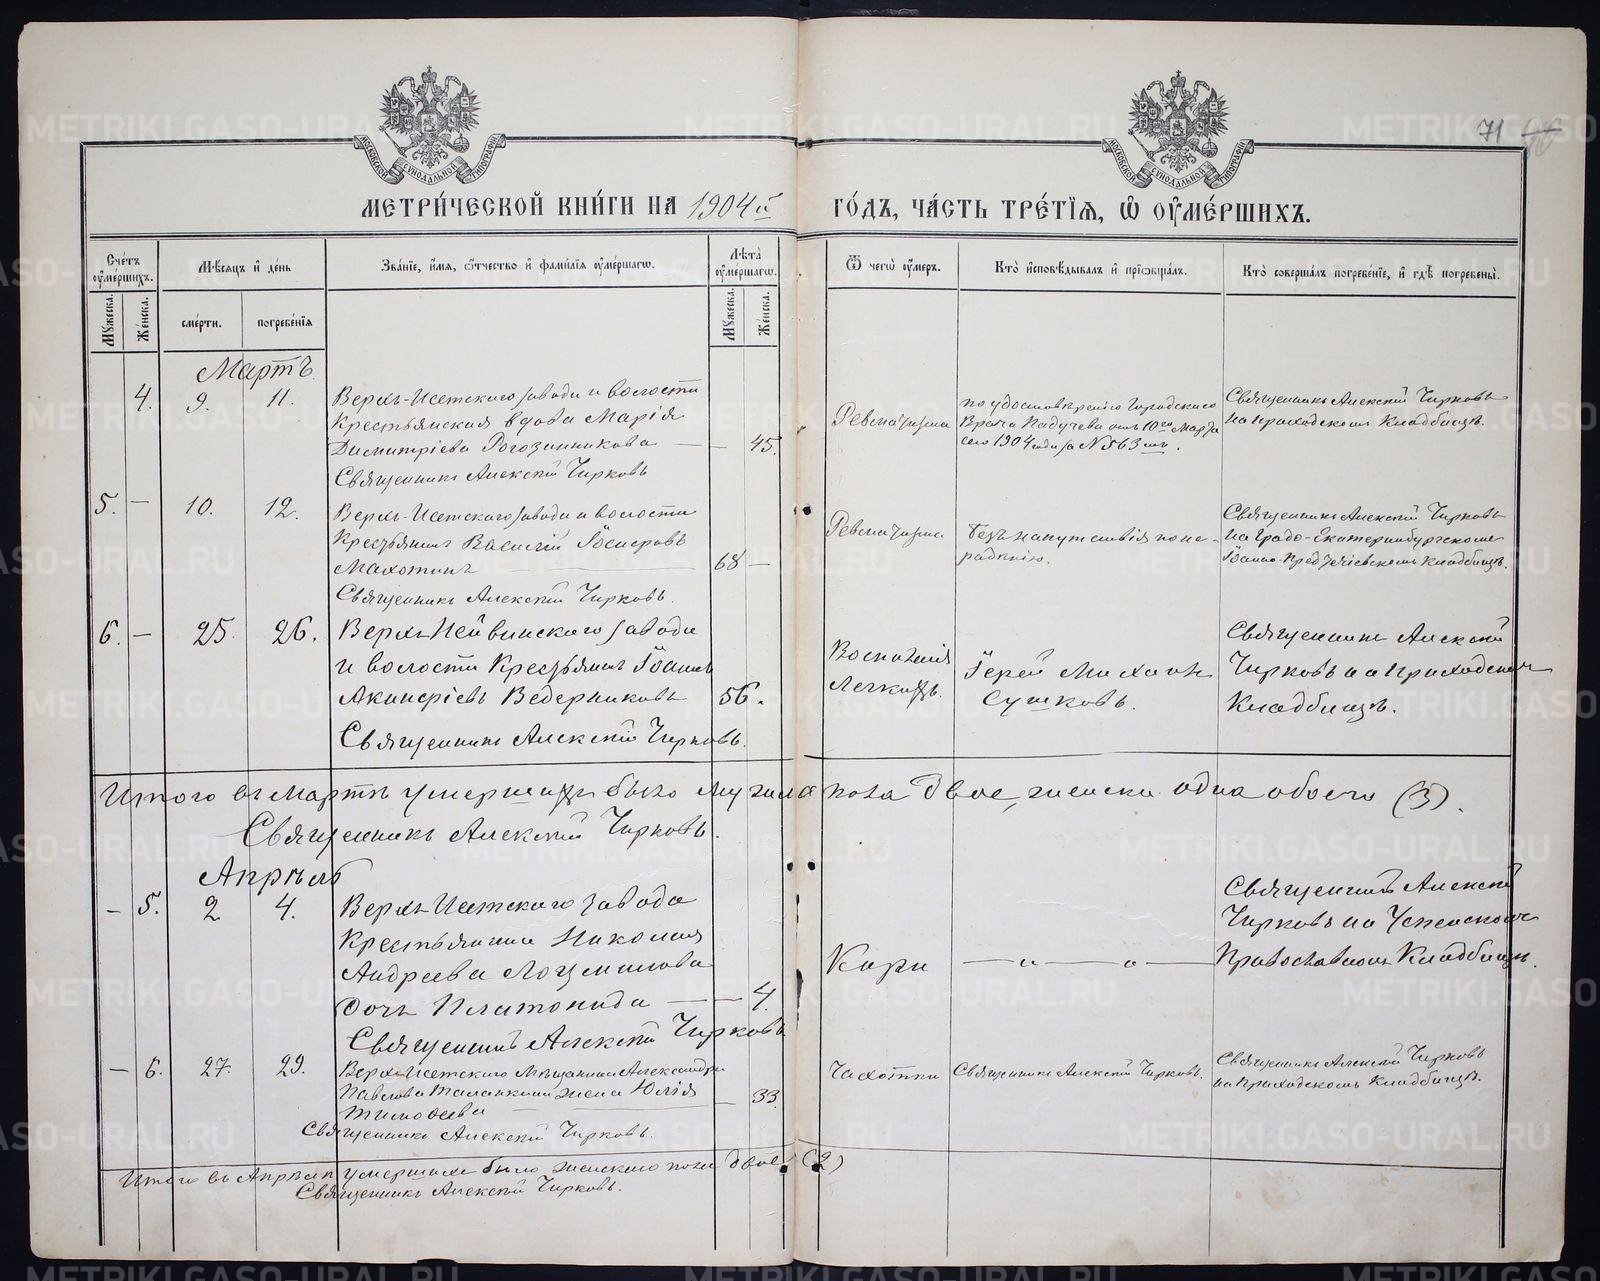 МЕТРИ́ЧЕСКОЙ КНИ́ГИ НА 1904й ГО́ДЪ, ЧА́СТЬ ТРЕ́ТІЯ, Ѡ҆ ОУ҆МЕ́РШИХЪ.
71
Сче́тъ оу҆ме́ршихъ.
Мѣ́сяцъ и҆ де́нь
Зва́нїе, и҆́мя, ѻ҆́тчество и҆ фами́лїя оу҆ме́ршагѡ.
Лѣ́та оу҆ме́ршагѡ.
Ѿ чегѡ̀ оу҆́меръ.
Кто̀ и҆сповѣ́дывалъ и҆ прїѡбща́лъ.
Кто̀ соверша́лъ погребе́нїе, и҆ гдѣ̀ погребены̀.
Му́жеска.
Же́нска.
сме́рти.
погребе́нїя
Му́жеска.
Же́нска.
Мартъ
4. 9. 11. Верхъ-Исетскаго завода и волости
Крестьянская вдова Марія
Димитріева Рогозинникова — — 45.
Священникъ Алексій Чирковъ
Ревматизма
по удостовѣренію Городского
Врача Падучева отъ 10го Марта
сего 1904 года за № 563
Священникъ Алексій Чирковъ
на приходскомъ Кладбищѣ.
5. — 10. 12. Верхъ-Исетскаго завода и волости
Крестьянинъ Василій
Махотинъ 68 —
Священникъ Алексій Чирковъ.
Ревматизма
Безъ напутствія по не-
радѣнію.
Священникъ Алексій Чирковъ
на градо-Екатеринбургскомъ
Іоанно-Предтечіевскомъ Кладбищѣ.
6. — 25. 26. Верхъ-Нейвинскаго завода
и волости Крестьянинъ Іоаннъ
Ведерниковъ 56.
Священникъ Алексій Чирковъ.
Воспаленія
Легкихъ.
Іерей Михаилъ
Сушковъ.
Священникъ Алексій
Чирковъ на приходскомъ
Кладбищѣ.
Итого въ Мартѣ умершихъ было мужеска пола двое, женска одна обоего (3).
Священникъ Алексій Чирковъ.
Апрѣль
— 5. 2 4. Верхъ-Исетскаго завода
Крестьянина Николая
Андреева Лоцманова
дочь Платонида — — 4.
Священникъ Алексій Чирковъ
Кори
— „ — „ —
Священникъ Алексій
Чирковъ на Успенскомъ
Православномъ Кладбищѣ.
— 6. 27. 29. Верхъ-Исетскаго Мѣщанина Александра
Павлова жена Юлія
Тимофеева — 33.
Священникъ Алексій Чирковъ.
Чахотки
Священникъ Алексій Чирковъ.
Священникъ Алексій Чирковъ
на Приходскомъ Кладбищѣ.
Итого въ Апрѣлѣ умершихъ было женскаго пола двое (2)
Священникъ Алексій Чирковъ.
METRIKI.GASO-URAL.RU